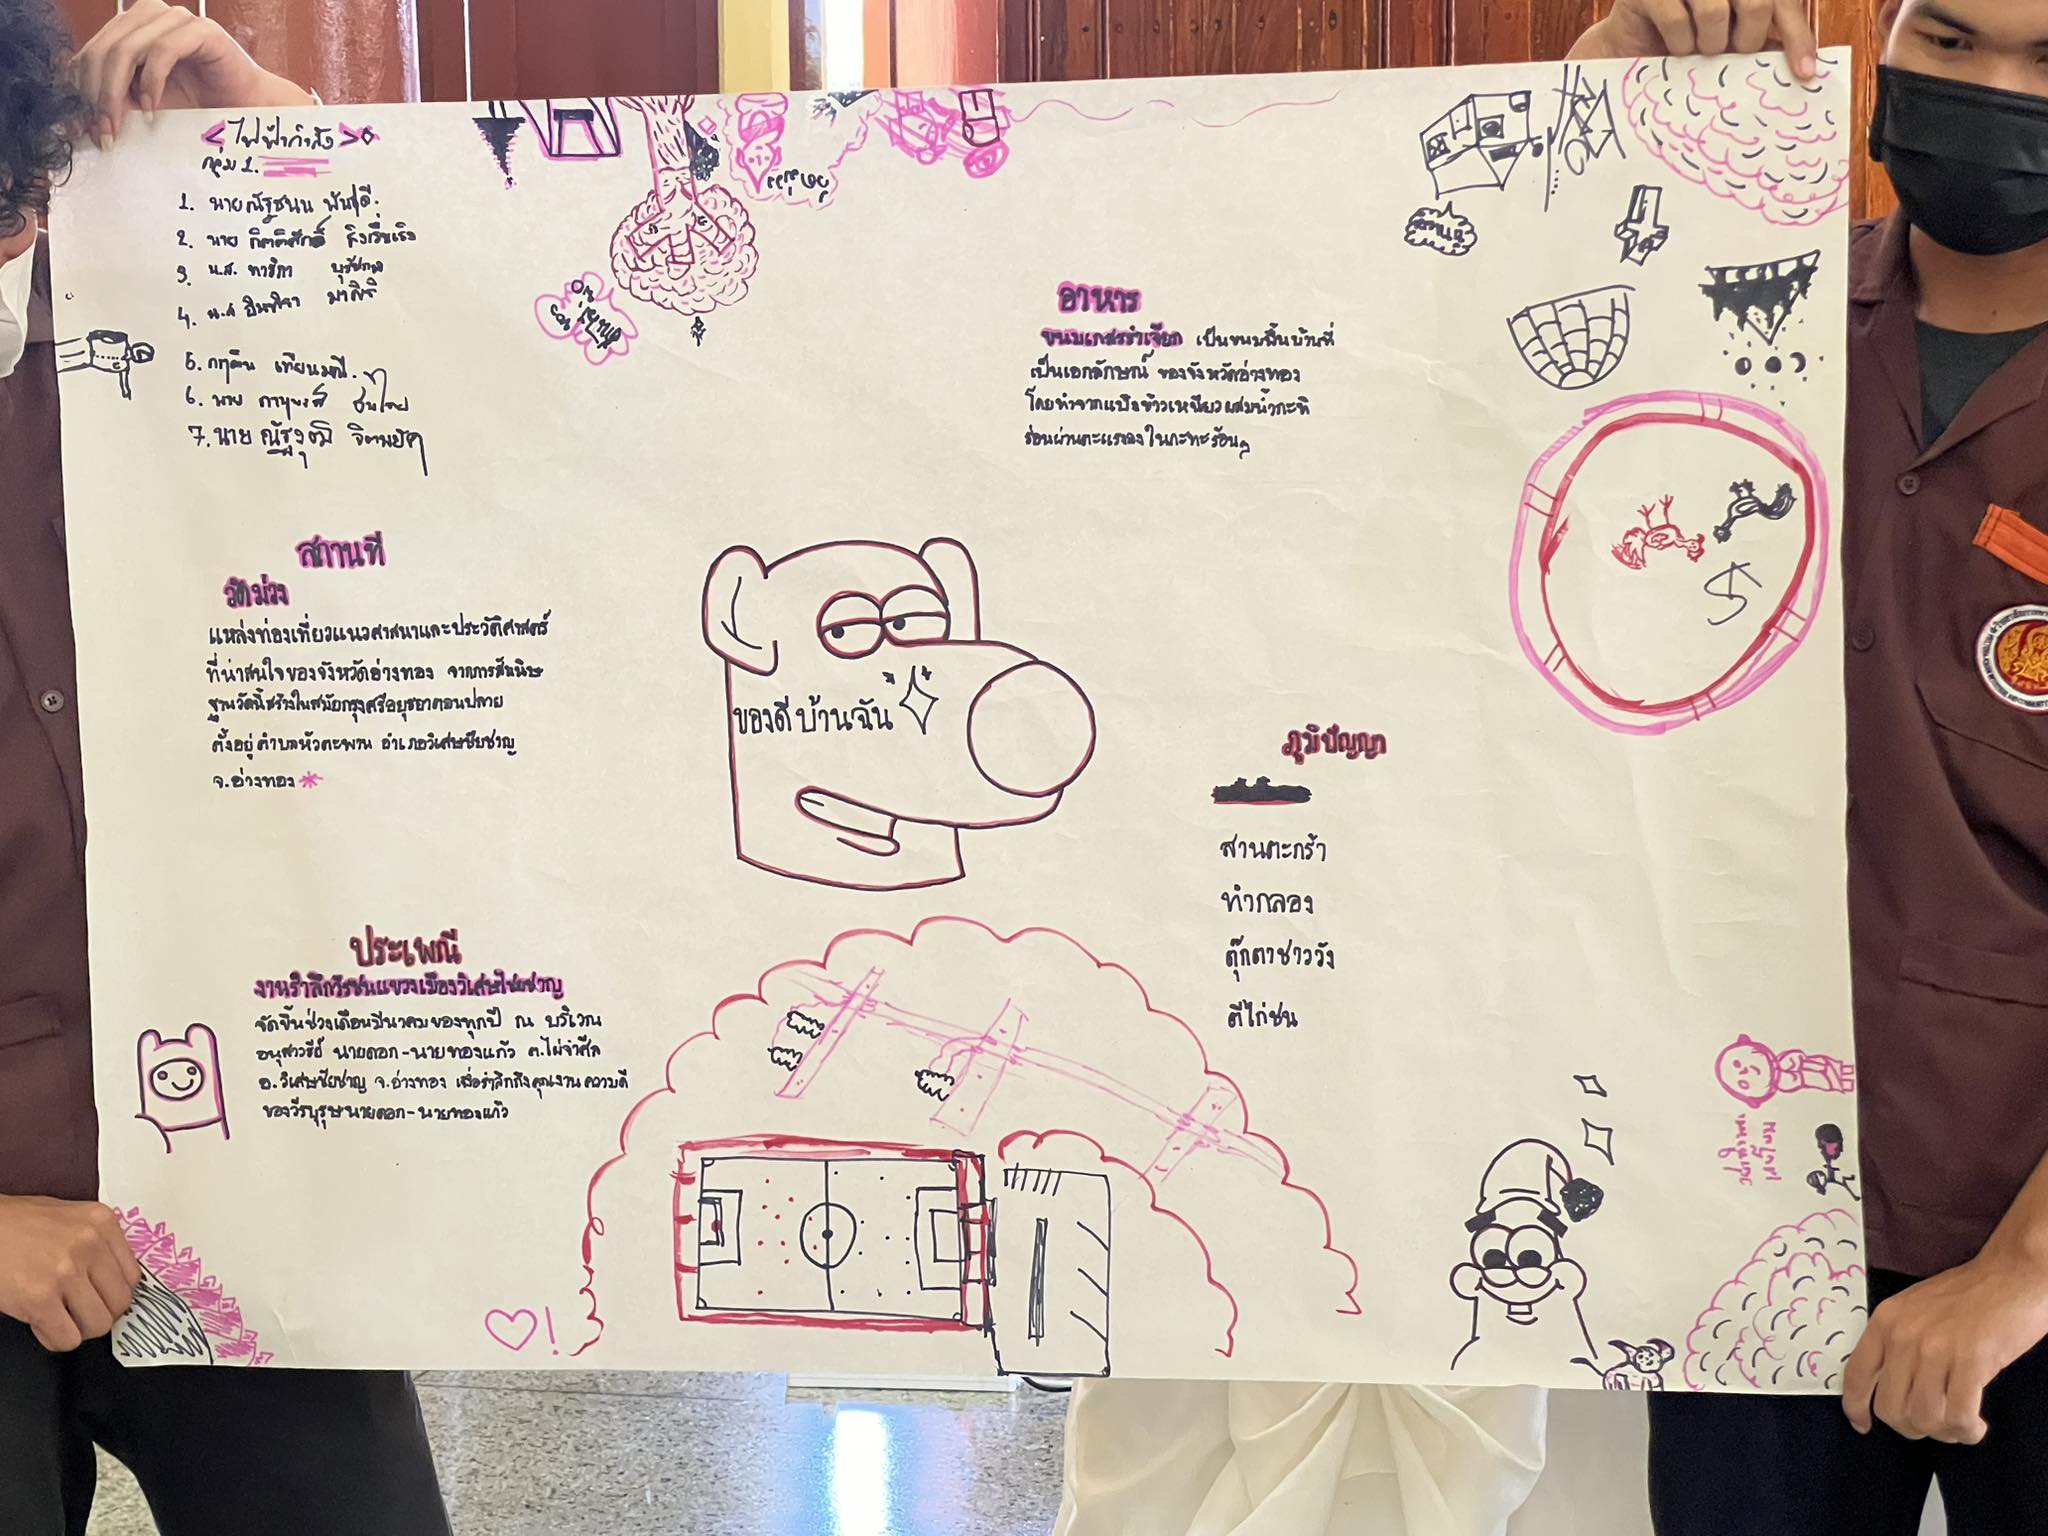 <ไฟฟ้ากำลัง>
กลุ่ม 1.
1. นายณัฐชนน พันธุ์ดี.
2. นาย กิตติศักดิ์
3. น.ส. ทาริกา
4. น.ส อินทิรา มาศิริ
5. กฤติน เทียนมณี.
6. นาย ภานุพงส์ ชื่นใจ
7. นาย ณัฐวุฒิ
สถานที่
วัดม่วง
แหล่งท่องเที่ยวแนวศาสนาและประวัติศาสตร์
ที่น่าสนใจของจังหวัดอ่างทอง จากการสันนิษ
ฐานวัดนี้สร้างในสมัยกรุงศรีอยุธยาตอนปลาย
ตั้งอยู่ตำบลหัวตะพาน อำเภอวิเศษชัยชาญ
จ.อ่างทอง
ประเพณี
งานรำลึกวีรชนแขวงเมืองวิเศษไชยชาญ
จัดขึ้นช่วงเดือนมีนาคมของทุกปี ณ บริเวณ
อนุสาวรีย์ นายดอก-นายทองแก้ว ต.ไผ่จำศีล
อ.วิเศษชัยชาญ จ.อ่างทอง เพื่อรำลึกถึงคุณงานความดี
ของวีรบุรุษนายดอก-นายทองแก้ว
ของดีบ้านฉัน
อาหาร
ขนมเกสรลำเจียก เป็นขนมพื้นบ้านที่
เป็นเอกลักษณ์ ของจังหวัดอ่างทอง
โดยทำจากแป้งข้าวเหนียวผสมน้ำกะทิ
ร่อนผ่านตะแรงลงในกะทะร้อนๆ
ภูมิปัญญา
สานตะกร้า
ทำกลอง
ตุ๊กตาชาววัง
ตีไก่ชน